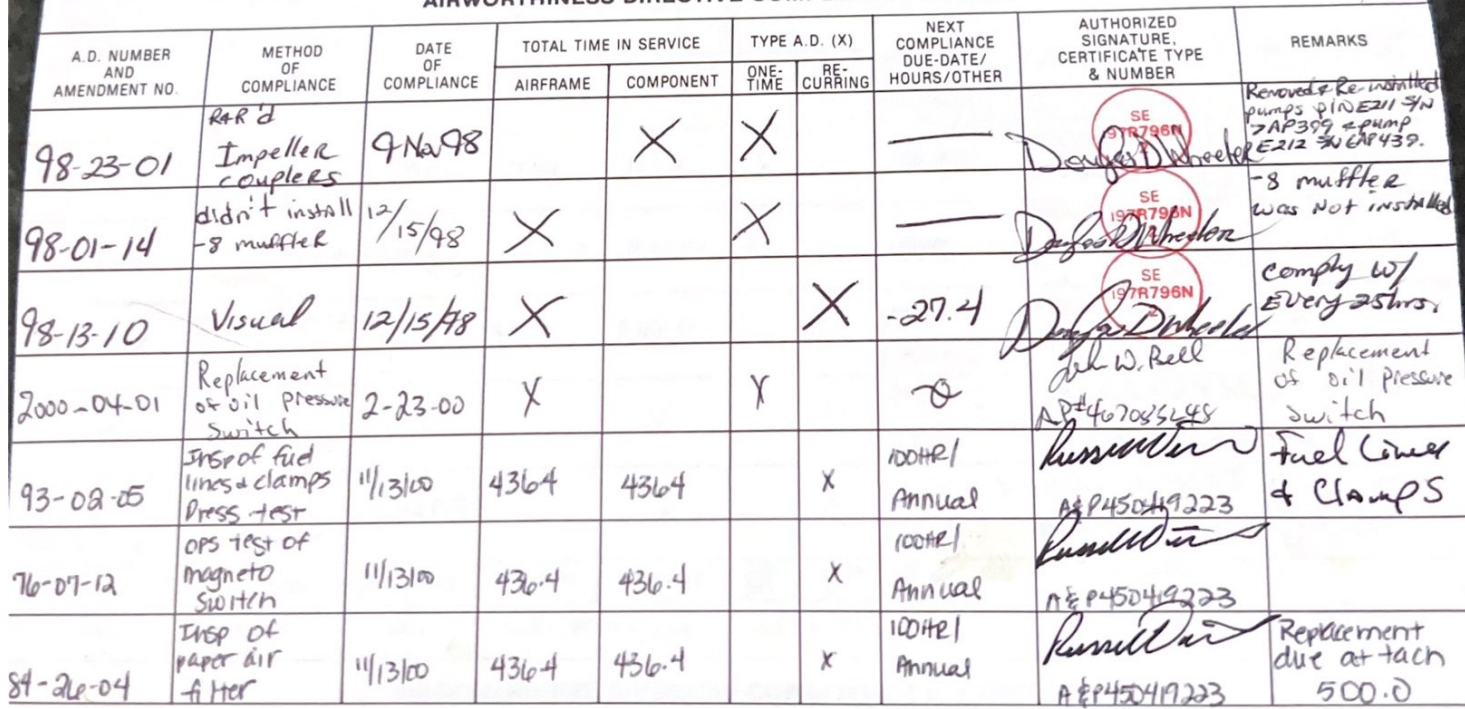 AIRWORTHINESS DIRECTIVE
A.D. NUMBER AND AMENDMENT NO.
METHOD OF COMPLIANCE
DATE OF COMPLIANCE
TOTAL TIME IN SERVICE
AIRFRAME
COMPONENT
TYPE A.D. (X)
ONE-TIME
RE-CURRING
NEXT COMPLIANCE DUE-DATE/ HOURS/OTHER
AUTHORIZED SIGNATURE, CERTIFICATE TYPE & NUMBER
REMARKS
98-23-01
R&R'd
Impeller
couplers
9 Nov 98
X
X
SE
197R796N
Douglas D Wheeler
Removed & Re-installed
pumps P/N E211 S/N
7AP399 & pump
E212 S/N EAP439.
98-01-14
didn't install
-8 muffler
12/15/98
X
X
SE
197R796N
Douglas D Wheeler
-8 muffler
was not installed
98-13-10
Visual
12/15/98
X
X
-27.4
SE
197R796N
Douglas D Wheeler
comply w/
Every 25hrs.
2000-04-01
Replacement
of oil pressure
switch
2-23-00
X
X
W. Bell
Replacement
of oil pressure
switch
93-02-05
Insp of fuel
lines & clamps
Press test
11/13/00
436.4
436.4
X
100HR/
Annual
A&P450419223
Fuel Lines
& Clamps
76-07-12
OPS test of
magneto
switch
11/13/00
436.4
436.4
X
100HR/
Annual
A&P450419223
84-26-04
Insp of
paper air
filter
11/13/00
436.4
436.4
X
100HR/
Annual
A&P450419223
Replacement
due at tach
500.0